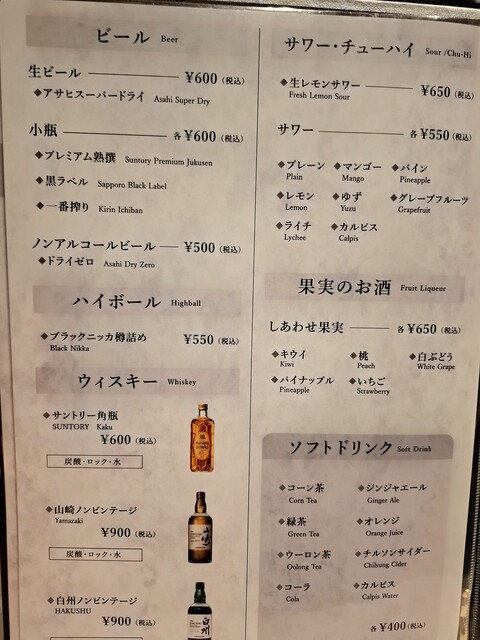 ビール Beer
生ビール ¥600（税込）
◆アサヒスーパードライ Asahi Super Dry
小瓶 各¥600（税込）
◆プレミアム熟撰 Suntory Premium Jukusen
◆黒ラベル Sapporo Black Label
◆一番搾り Kirin Ichiban
ノンアルコールビール ¥500（税込）
◆ドライゼロ Asahi Dry Zero
ハイボール Highball
◆ブラックニッカ樽詰め ¥550（税込）
Black Nikka
ウィスキー Whiskey
◆サントリー角瓶
SUNTORY Kaku
¥600（税込）
炭酸・ロック・水
◆山崎ノンビンテージ
Yamazaki
¥900（税込）
炭酸・ロック・水
◆白州ノンビンテージ
HAKUSHU
¥900（税込）
サワー・チューハイ Sour /Chu-Hi
◆生レモンサワー ¥650（税込）
Fresh Lemon Sour
サワー 各¥550（税込）
◆プレーン ◆マンゴー ◆パイン
Plain Mango Pineapple
◆レモン ◆ゆず ◆グレープフルーツ
Lemon Yuzu Grapefruit
◆ライチ ◆カルピス
Lychee Calpis
果実のお酒 Fruit Liqueur
しあわせ果実 各¥650（税込）
◆キウイ ◆桃 ◆白ぶどう
Kiwi Peach White Grape
◆パイナップル ◆いちご
Pineapple Strawberry
ソフトドリンク Soft Drink
◆コーン茶 ◆ジンジャエール
Corn Tea Ginger Ale
◆緑茶 ◆オレンジ
Green Tea Orange Juice
◆ウーロン茶 ◆チルソンサイダー
Oolong Tea Chilsung Cider
◆コーラ ◆カルピス
Cola Calpis Water
各¥400（税込）